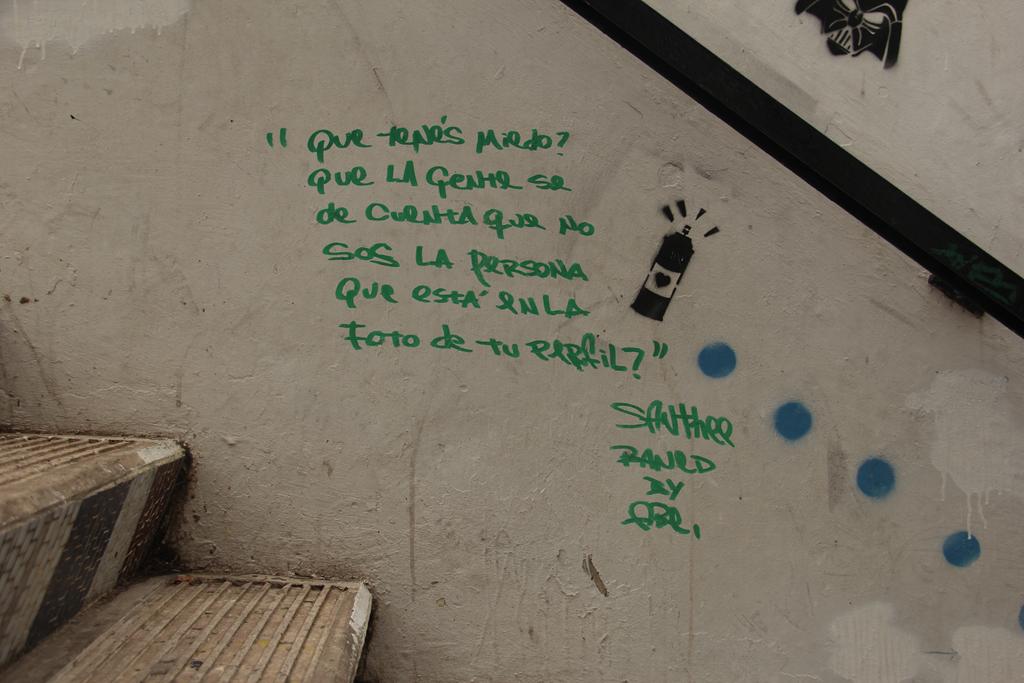 "Que tenés miedo?
Que LA Gente se
de CUENTA que NO
SOS LA PERSONA
Que está en LA
Foto de tu Perfil?"
BY